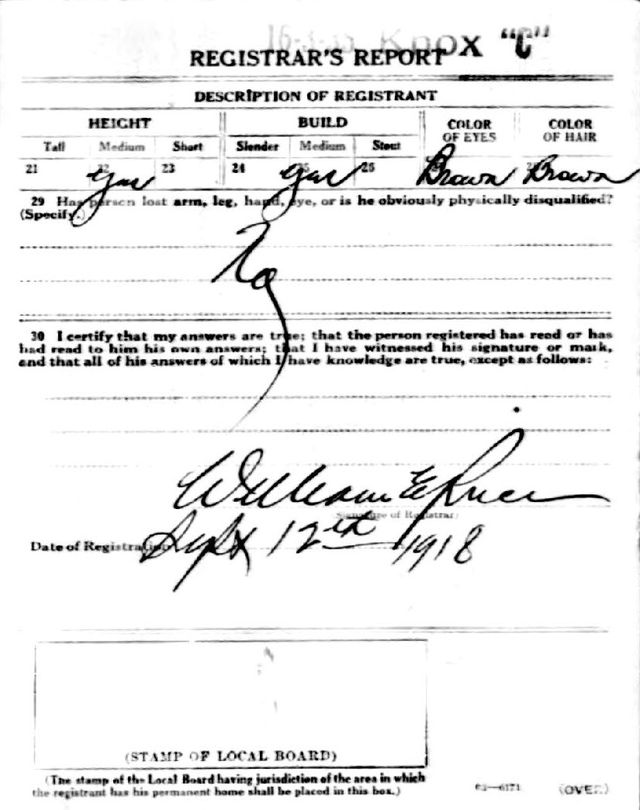 Knox "C"
REGISTRAR'S REPORT
DESCRIPTION OF REGISTRANT
HEIGHT BUILD COLOR OF EYES COLOR OF HAIR
Tall Medium Short Slender Medium Stout
21 22 yes 23 24 25 yes 26 Brown Brown
29 Has person lost arm, leg, hand, eye, or is he obviously physically disqualified?
(Specify.)
No
30 I certify that my answers are true; that the person registered has read or has
had read to him his own answers; that I have witnessed his signature or mark,
and that all of his answers of which I have knowledge are true, except as follows:
William E
Signature of Registrar
Date of Registration Sept 12th 1918
(STAMP OF LOCAL BOARD)
(The stamp of the Local Board having jurisdiction of the area in which
the registrant has his permanent home shall be placed in this box.)
(OVER)